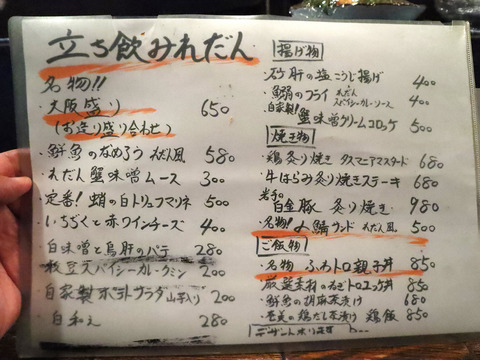 立ち飲みれだん
名物!!
・大阪盛り 650
(お造り盛り合わせ)
・鮮魚のなめろう れだん風 580
・れだん蟹味噌ムース 300
・定番!蛸の白トリュフマリネ 500
・いちぢくと赤ワインチーズ 400
・白味噌と鳥肝のパテ 280
・枝豆スパイシーカレークミン 200
・自家製ポテトサラダ 山芋入り 200
・白和え 280
揚げ物
・砂肝の塩こうじ揚げ 400
・鯵のフライ れだんスパイシーカレーソース 400
・自家製!蟹味噌クリームコロッケ 500
焼き物
・鶏炙り焼き タスマニアマスタード 680
・牛はらみ炙り焼きステーキ 680
・岩手の白金豚 炙り焼き 980
・名物!よ鯖サンド れだん風 500
ご飯物
・名物 ふわトロ親子丼 850
・厳選素材のねぎトロユッケ丼 850
・鮮魚の胡麻茶漬け 680
・奄美の鶏だし茶漬け 鶏飯 850
デザート承ります